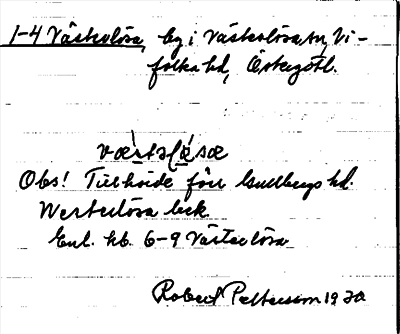 1-4 Västerlösa, by i Västerlösa sn, Vi-
folka hd, Östergötl.
Obs! Tillhörde förr Gullbergs hd.
Westerlösa beck.
Enl. kb. 6-9 Västerlösa
Robert Pettersson 1930